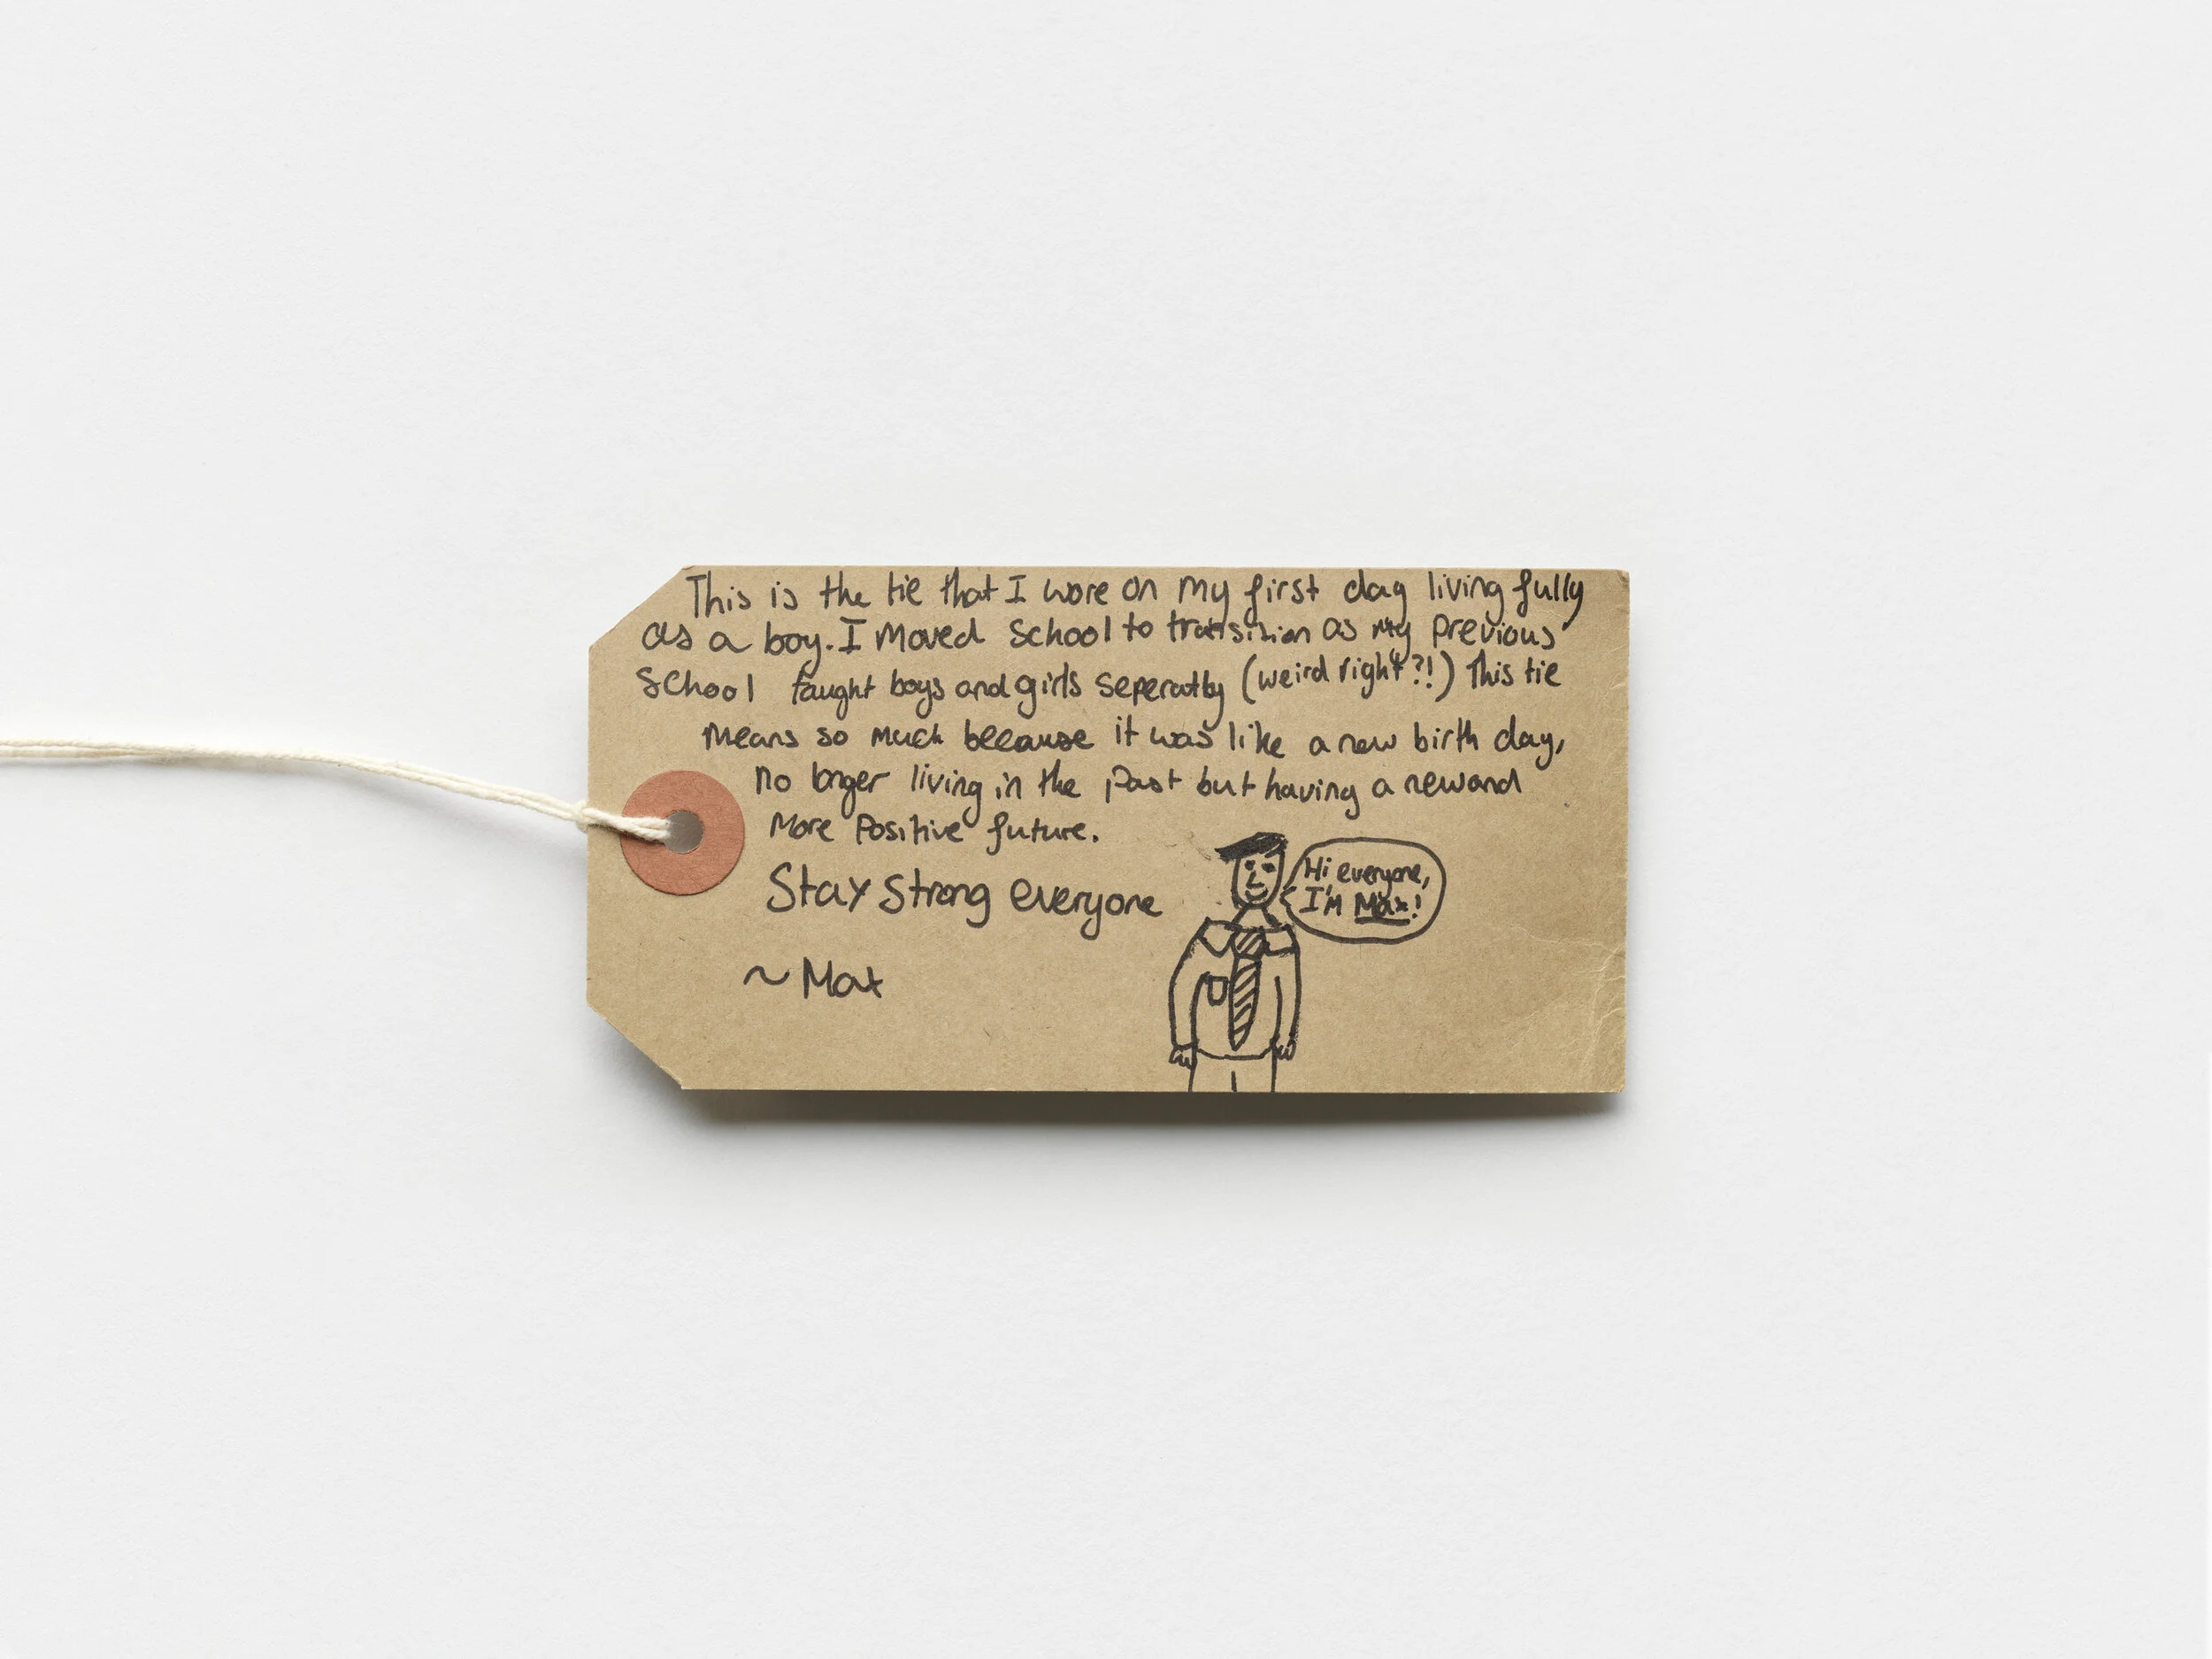 This is the tie that I wore on my first day living fully
as a boy. I moved school to transition as my previous
school taught boys and girls seperatly (weird right?!) This tie
means so much because it was like a new birth day,
no longer living in the past but having a new and
more positive future.
Stay strong everyone
~ Max
Hi everyone,
I'm Max!